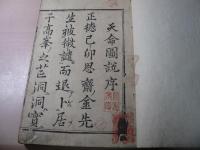 天命圖說序
正德己卯思齋金先
生被微譴而退卜居
于高峯之芒洞洞實